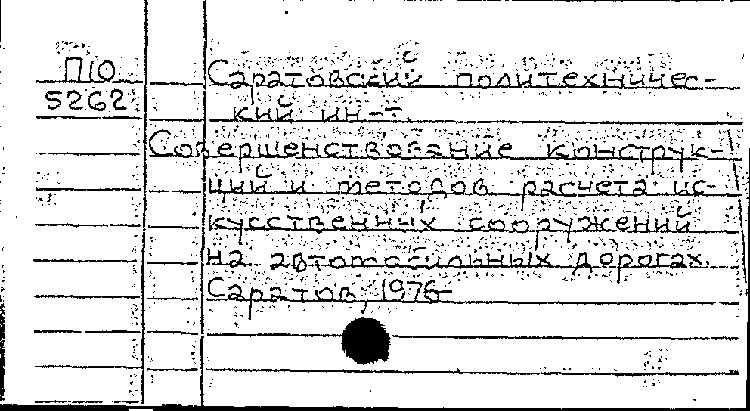 П10
5262
Саратовский политехничес-
кий ин-т.
Совершенствование конструк-
ций и методов расчета ис-
кусственных сооружений
на автомобильных дорогах.
Саратов, 1976-